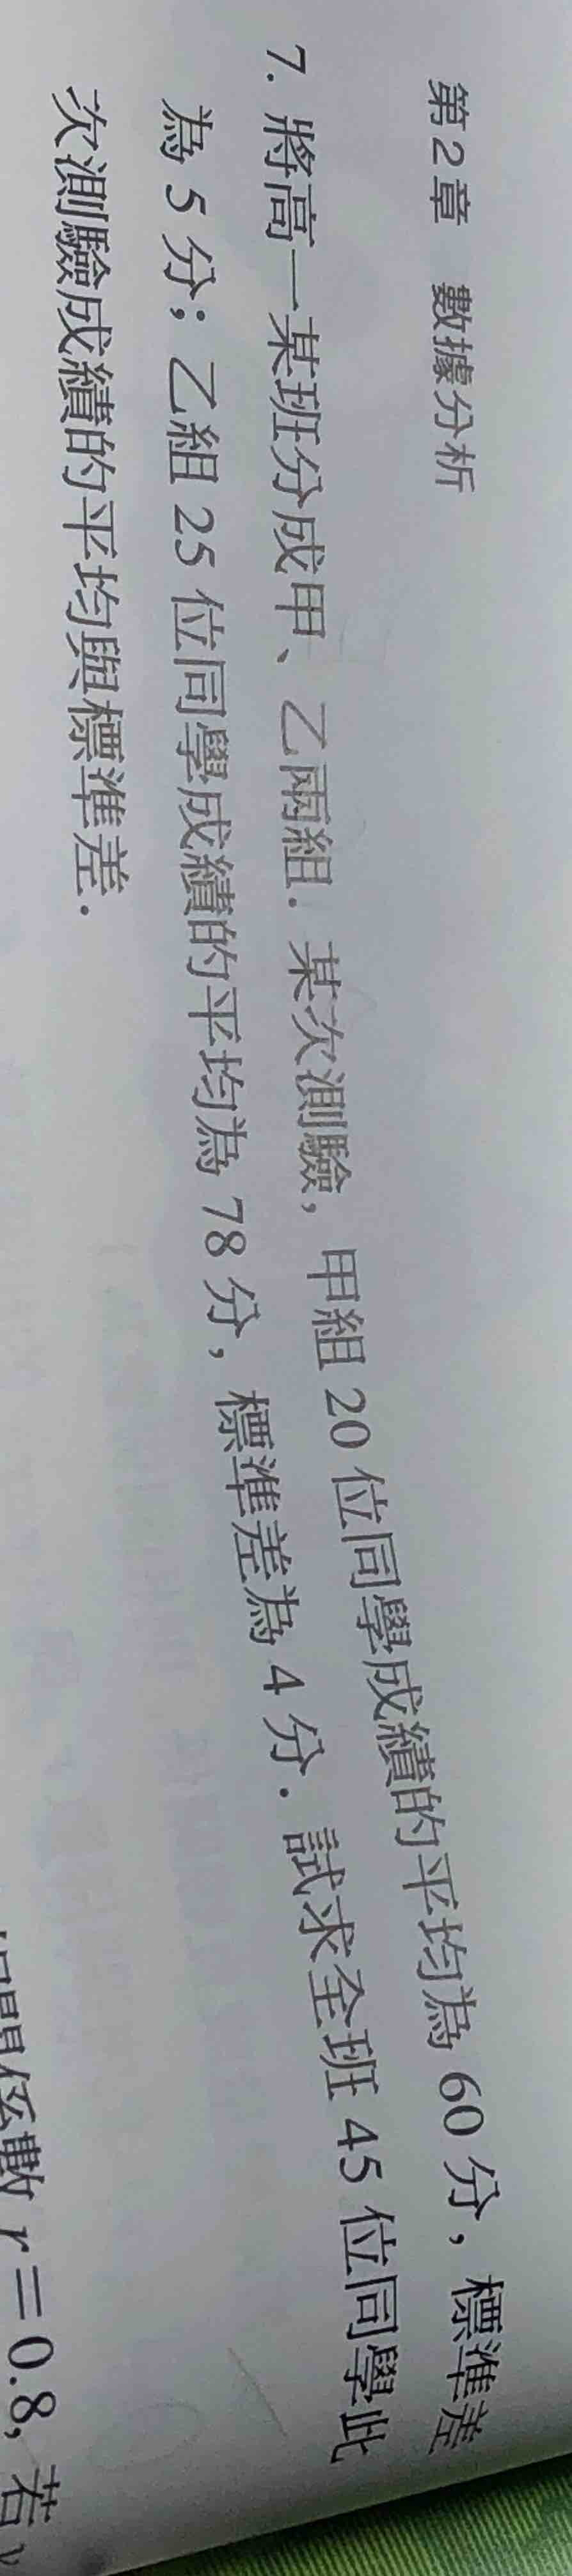 第2章 數據分析
7. 將高一某班分成甲、乙兩組. 某次測驗, 甲組 20 位同學成績的平均為 60 分, 標準差
為 5 分; 乙組 25 位同學成績的平均為 78 分, 標準差為 4 分. 試求全班 45 位同學此
次測驗成績的平均與標準差.
係數 r = 0.8, 若